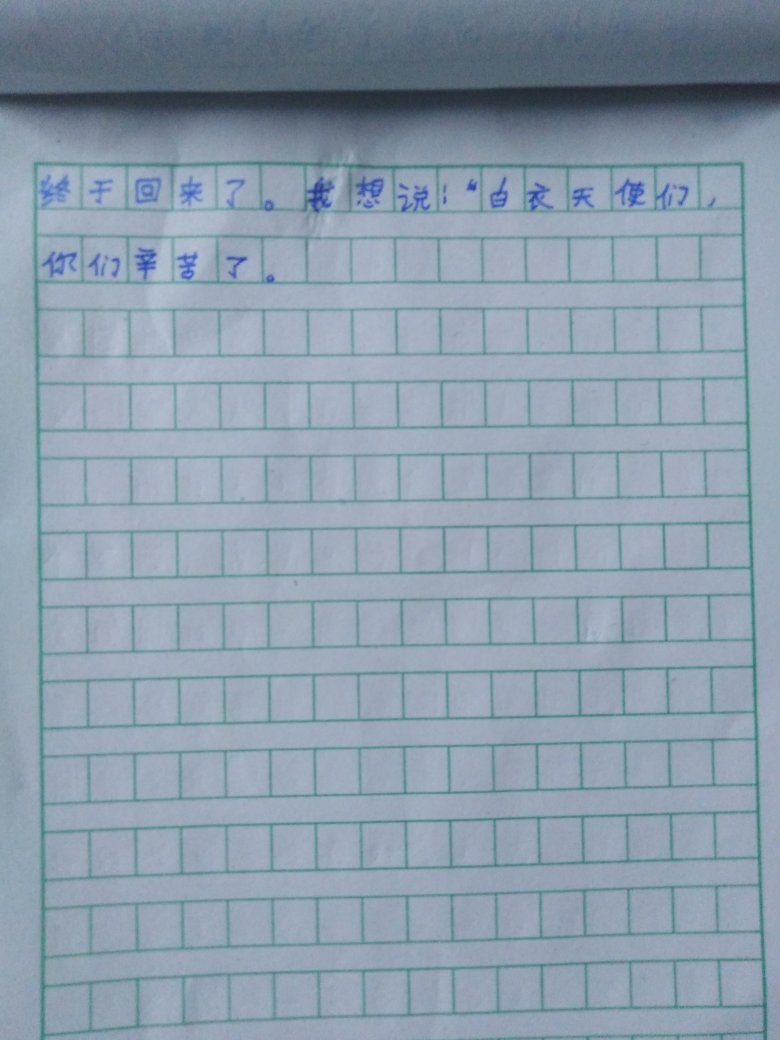 终于回来了。我想说：“白衣天使们，
你们辛苦了。